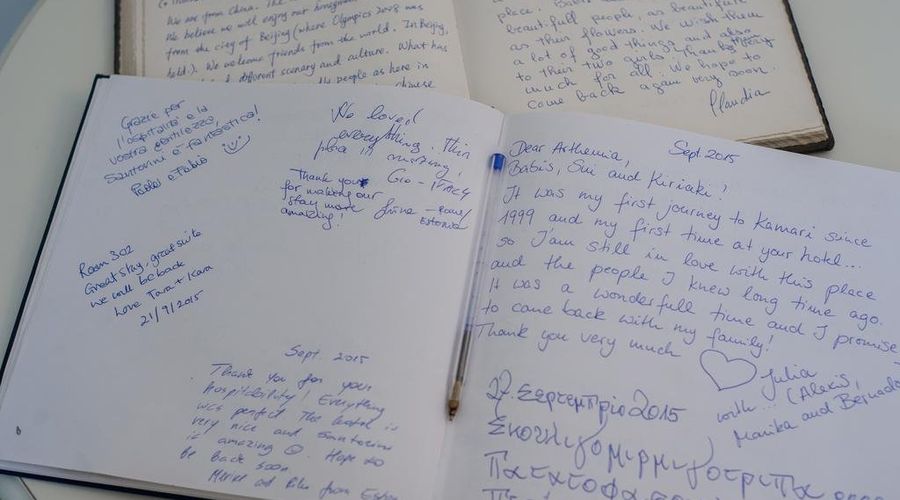 We are from China. The
We believe we will enjoy our
from the city of Beijing (where Olympics 2008 was
held.). We welcome friends from the world. In Beijing,
different scenery and culture. What has
the people as here in
chinese
place.
beautifull people, as beautifull
as their flowers. We wish them
a lot of good things and also
to their two girls. Thanks very
much for all. We hope to
come back again very soon...
Claudia
Grazie per
l'ospitalità e la
vostra gentilezza,
Santorini è fantastica!
Paolo e Fabio
We loved
everything. This
place is amazing!
Gio - ITALY
Thank you
for making our
stay more
amazing!
Estonia
Room 302
Great stay, great suite
we will be back
Love Tara + Kara
21/9/2015
Sept. 2015
Thank you for your
hospitability! Everything
was perfect. The hotel is
very nice and Santorini
is amazing ☺. Hope to
be back soon.
from
Sept. 2015
Dear Arthemia,
Babis, Sui and Kiriaki!
It was my first journey to Kamari since
1999 and my first time at your hotel...
so I'am still in love with this place
and the people I knew long time ago.
It was a wonderfull time and I promise
to come back with my family!
Thank you very much ♡ Julia
with... (Alexis,
Marika and
27 Σεπτεμπρίο 2015